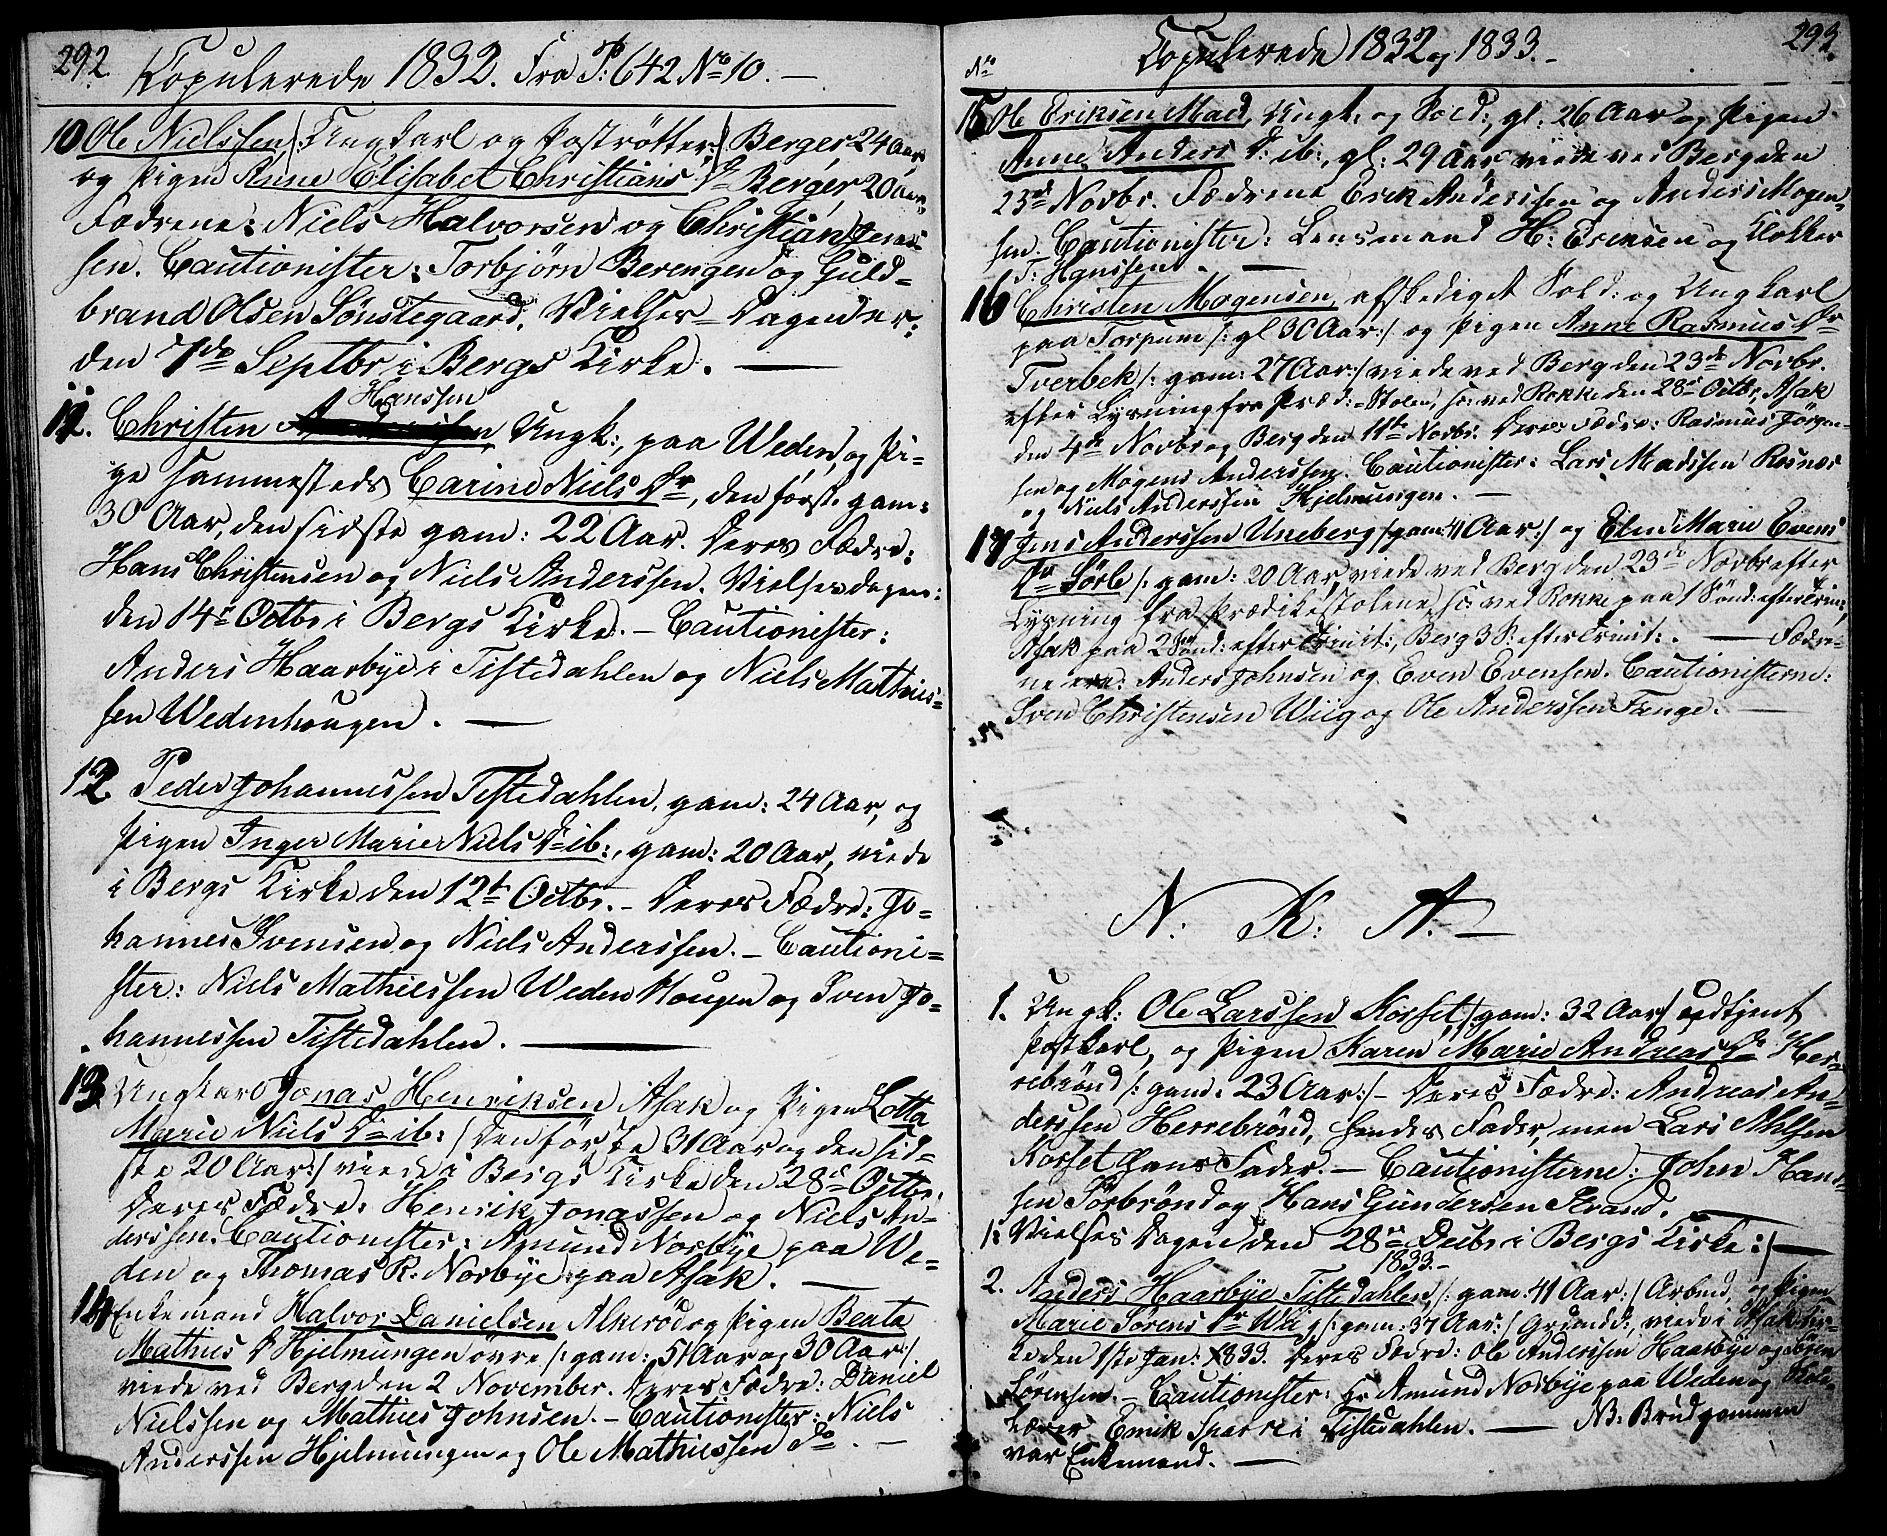 292.
Kopulerede 1832. Fra P: 642 No 10. —
10 Ole Nielssen /: Ungkarl og :/ Berger 24 Aar,
og Pigen Anne Elisabet Christians Dr Berger 20 Aar.
Fædrene: Niels Halvorsen og Christian
sen. Cautionister: Torbjørn Berengen og Guld-
brand Olsen Sønstegaard. Vielses-Dagen er:
den 7de Septbr i Bergs Kirke. —
Hanssen
11. Christen Ungk:, paa Weden, og Pi-
ge sammesteds Carine Niels Dr, den første gam:
30 Aar, den sidste gam: 22 Aar. Deres Fædre:
Hans Christensen og Niels Anderssen. Vielsesdagen:
den 14de Octbr i Bergs Kirke. — Cautionister:
Anders Haarbye i Tistedahlen og Niels Mathies-
sen Wedenhougen. —
12. Peder Johannessen Tistedahlen, gam: 24 Aar, og
Pigen Inger Marie Niels Dr ib:, gam: 20 Aar, viede
i Bergs Kirke den 12te Octbr. — Deres Fædre: Jo-
hannes Svensen og Niels Anderssen. — Cautioni-
ster: Niels Mathiessen Weden Hougen og Sven Jo-
hannessen Tistedahlen. —
13 Ungkarl Jonas Henriksen Asak og Pigen Lotta
Marie Niels Dr ib: / Den første 31 Aar og den sid-
ste 20 Aar :/ viede i Bergs Kirke den 28de Octbr.
Deres Fædre: Henrik Jonassen og Niels An-
derssen. Cautionister: Amund Norbye paa We-
den og Thomas R. Norbye paa Asak. —
14 Enkemand Halvor Danielsen Alkerød og Pigen Beate
Mathies D Hjelmungen øvre /: gam: 51 Aar og 30 Aar :/
viede ved Berg den 2 November. Deres Fædre: Daniel
Nielssen og Mathies Johnsen. — Cautionister: Niels
Anderssen Hjelmungen og Ole Mathiessen do. —
293.
Kopulerede 1832 og 1833. —
No
15 Ole Eriksen Mael, Ungk: og Sold:, gl: 26 Aar og Pigen
Anne Anders D: ib:, gl: 29 Aar viede ved Berg den
23de Novbr. Fædrene Erik Anderssen og Anders Mogen-
sen. Cautionister: Lensmand H: Erensen og Klokker
T: Hanssen. —
16 Christen Mogensen, afskediget Sold: og Ungkarl
paa Torpum /: gl 30 Aar :/ og Pigen Anne Rasmus Dr
Tverbek /: gam: 27 Aar :/ viede ved Berg den 23de Novbr.
efter Lysning fra Præd:-Stolen, so: ved Rokke den 28de Octbr, Asak
den 4de Novbr og Berg den 11te Novbr. Deres Fædre: Rasmus Jørgen-
sen og Mogens Anderssen. Cautionister: Lars Madssen Røsnæs
og Niels Anderssen Hjelmungen. —
17 Jens Anderssen Uneberg /: gam: 41 Aar :/ og Elen Marie Evens
Dr Sørle /: gam: 20 Aar, viede ved Berg den 23de Novbr efter
Lysning fra Prædikestolene, so: ved Rokke paa 1 Sønd: efter Trin:,
Asak paa 2 Sønd: efter Trinit:, Berg 3 S: efter Trinit:. — Fædre-
ne ere: Anders Johnsen og Even Evensen. Cautionisterne:
Sven Christensen Wiig og Ole Anderssen Fange. —
N: K: A: —
1. Ungk: Ole Larssen Korset /: gam: 32 Aar :/ udtjent
Postkarl, og Pigen Karen Marie Andreas Dr Her-
rebrønd /: gam: 23 Aar :/ — Deres Fædre: Andreas An-
derssen Herrebrønd, hendes Fader, men Lars Ahlsen
Korset hans Fader. — Cautionisterne: John Hans-
sen Sørbrønd og Hans Gundersen Strand. —
/: Vielses Dagen den 28de Decbr i Bergs Kirke :/ —
1833. —
2. Anders Haarbye Tistedahlen, /: gam: 41 Aar :/ Arbmd, og Pigen
Marie Sørens Dr /: gam: 37 Aar :/ viede i Asak Kir-
ke den 1ste Jan: 1833. Deres Fædre: Ole Anderssen Haarbye og Søren
Sørensen. — Cautionister: Hr Amund Norbye paa Weden og Skole-
Lærer Emik Sparre i Tistedahlen. — NB: Brudgommen
var Enkemand. —